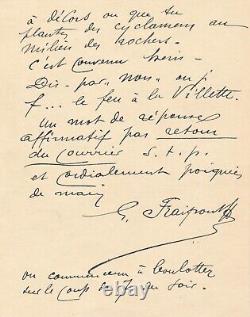 à décors ou que tu
plantes des cyclamens au
milieu des rochers.
c'est convenu hein -
Dis - pas "non" ou j'
f... le feu à la Villette
Un mot de réponse
affirmatif par retour
du courrier s.t.p.
et cordialement poignée
de main
G. Fraipont
on commencera à boulotter
sur le coup de 7h du soir.
© thebookmerchant.com